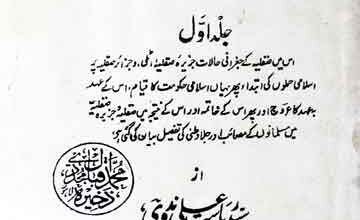 جلد اوّل
اس میں صقلیہ کے جغرافی حالات جزیرہ صقلیہ، اٹلی، و جزائر صقلیہ پر
اسلامی حملوں کی ابتدا، پھر یہاں اسلامی حکومت کا قیام، اس کے عہد
بعہد کا عروج، اور پھر اس کے خاتمہ اور اس کے نتیجہ میں صقلیہ و جزیرہ صقلیہ
میں مسلمانوں کے مصائب اور جلاوطنی کی تفصیل بیان کی گئی ہے،
از
ذخیرہ
سید ریاست علی ندوی